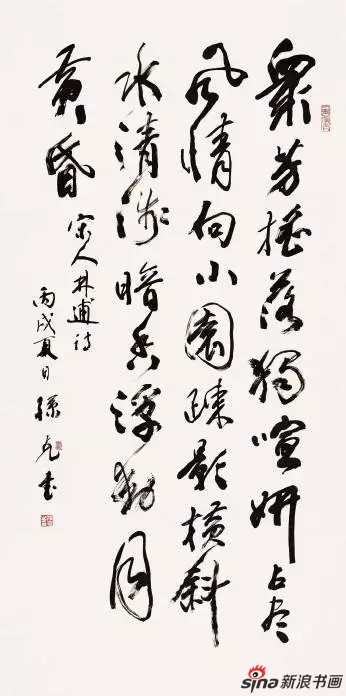 眾芳摇落獨喧妍占尽
风情向小園疎影横斜
水清浅暗香浮動月
黄昏
宋人林逋诗
丙戌夏日孫克书
sina新浪书画